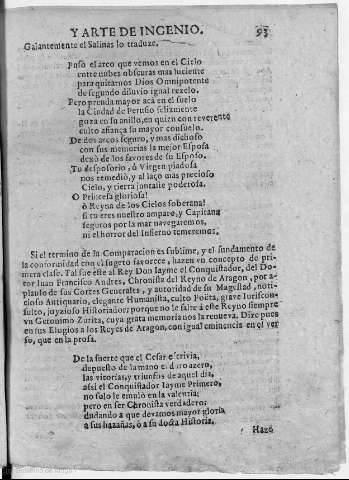 Y ARTE DE INGENIO. 93
Galantemente el Salinas lo traduze.
Puso el arco que vemos en el Cielo
entre nubes obscuras mas luciente
para quitarnos Dios Omnipotente
de segundo diluvio igual rezelo.
Pero prenda mayor acà en el suelo
la Ciudad de Perusio felizmente
goza en su anillo, en quien con reverente
culto afiança su mayor consuelo.
De dos arcos seguro, y mas dichoso
con sus memorias la mejor Esposa
dexò de los favores de su Esposo.
Tu desposorio, ò Virgen piadosa
nos remediò, y al laço mas precioso
Cielo, y tierra juntaste poderosa.
O Princesa gloriosa!
ò Reyna de los Cielos soberana!
si tu eres nuestro amparo, y Capitana
seguros por la mar navegaremos,
ni el horror del Infierno temeremos.
Si el termino de la Comparacion es sublime, y el fundamento de
la conformidad con el sugeto favorece, hazen vn concepto de pri-
mera clase. Tal fue este al Rey Don Iayme el Conquistador, del Do-
tor Iuan Francisco Andres, Chronista del Reyno de Aragon, por a-
plauso de sus Cortes Generales, y autoridad de su Magestad, noti-
cioso Antiquario, elegante Humanista, culto Poëta, grave Iuriscon-
sulto, juyzioso Historiador; porque no le falte à este Reyno siempre
vn Geronimo Zurita, cuya grata memoria nos la renueva. Dize pues
en sus Elogios a los Reyes de Aragon, con igual eminencia en el ver
so, que en la prosa.
De la suerte que el Cesar escrivia,
depuesto de la mano el duro azero,
las vitorias, y triunfos de aquel dia,
assi el Conquistador Iayme Primero,
no solo le emulò en la valentia;
pero en ser Chronista verdadero;
dudando a que devamos mayor gloria
a sus hazañas, ò a su docta Historia.
Hazé